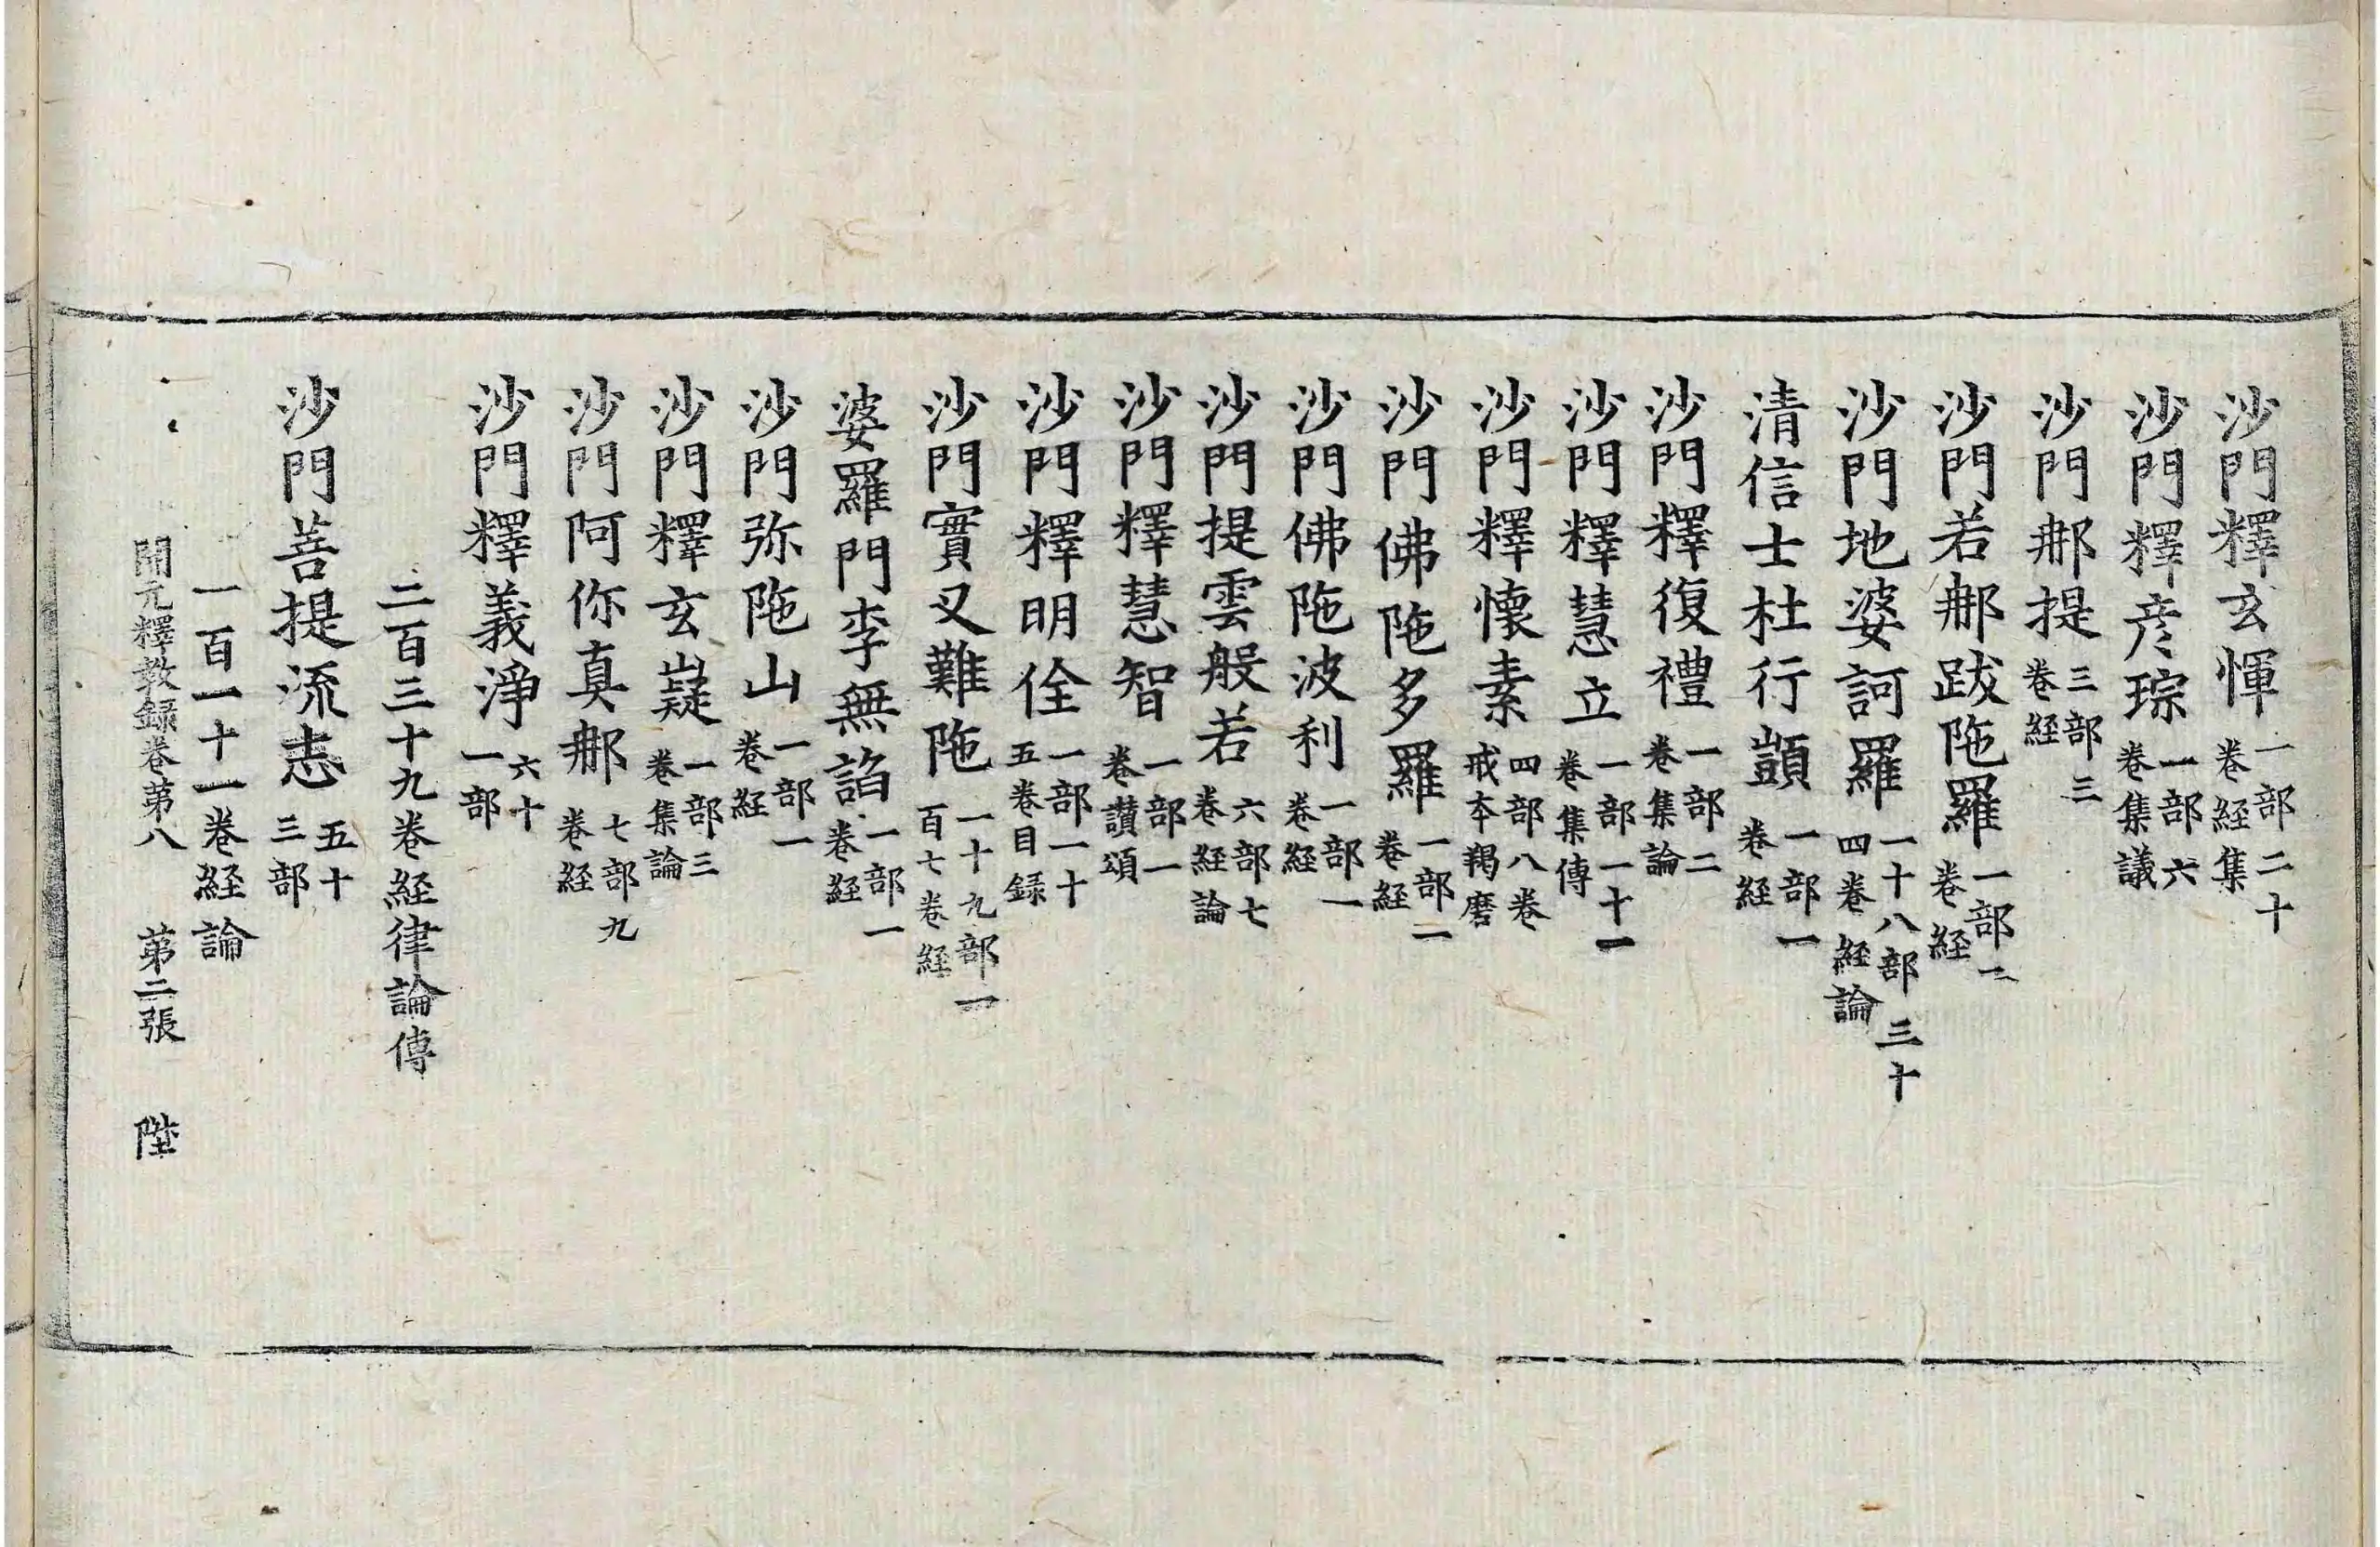 沙門釋玄惲一部二十卷経集
沙門釋彦琮一部六卷集議
沙門郍提三部三卷経
沙門若郍跋陁羅一部二卷経
沙門地婆訶羅一十八部三十四卷経論
清信士杜行顗一部一卷経
沙門釋復禮一部二卷集論
沙門釋慧立一部一十一卷集傳
沙門釋懷素四部八卷戒本羯磨
沙門佛陁多羅一部一卷経
沙門佛陁波利一部一卷経
沙門提雲般若六部七卷経論
沙門釋慧智一部一卷讃頌
沙門釋明佺一部一十五卷目録
沙門實叉難陁一十九部一百七卷経
婆羅門李無諂一部一卷経
沙門弥陁山一部一卷経
沙門釋玄嶷一部三卷集論
沙門阿你真郍七部九卷経
沙門釋義淨六十一部
二百三十九卷経律論傳
沙門菩提流志五十三部
一百一十一卷経論
開元釋教録卷第八　第二張　陛